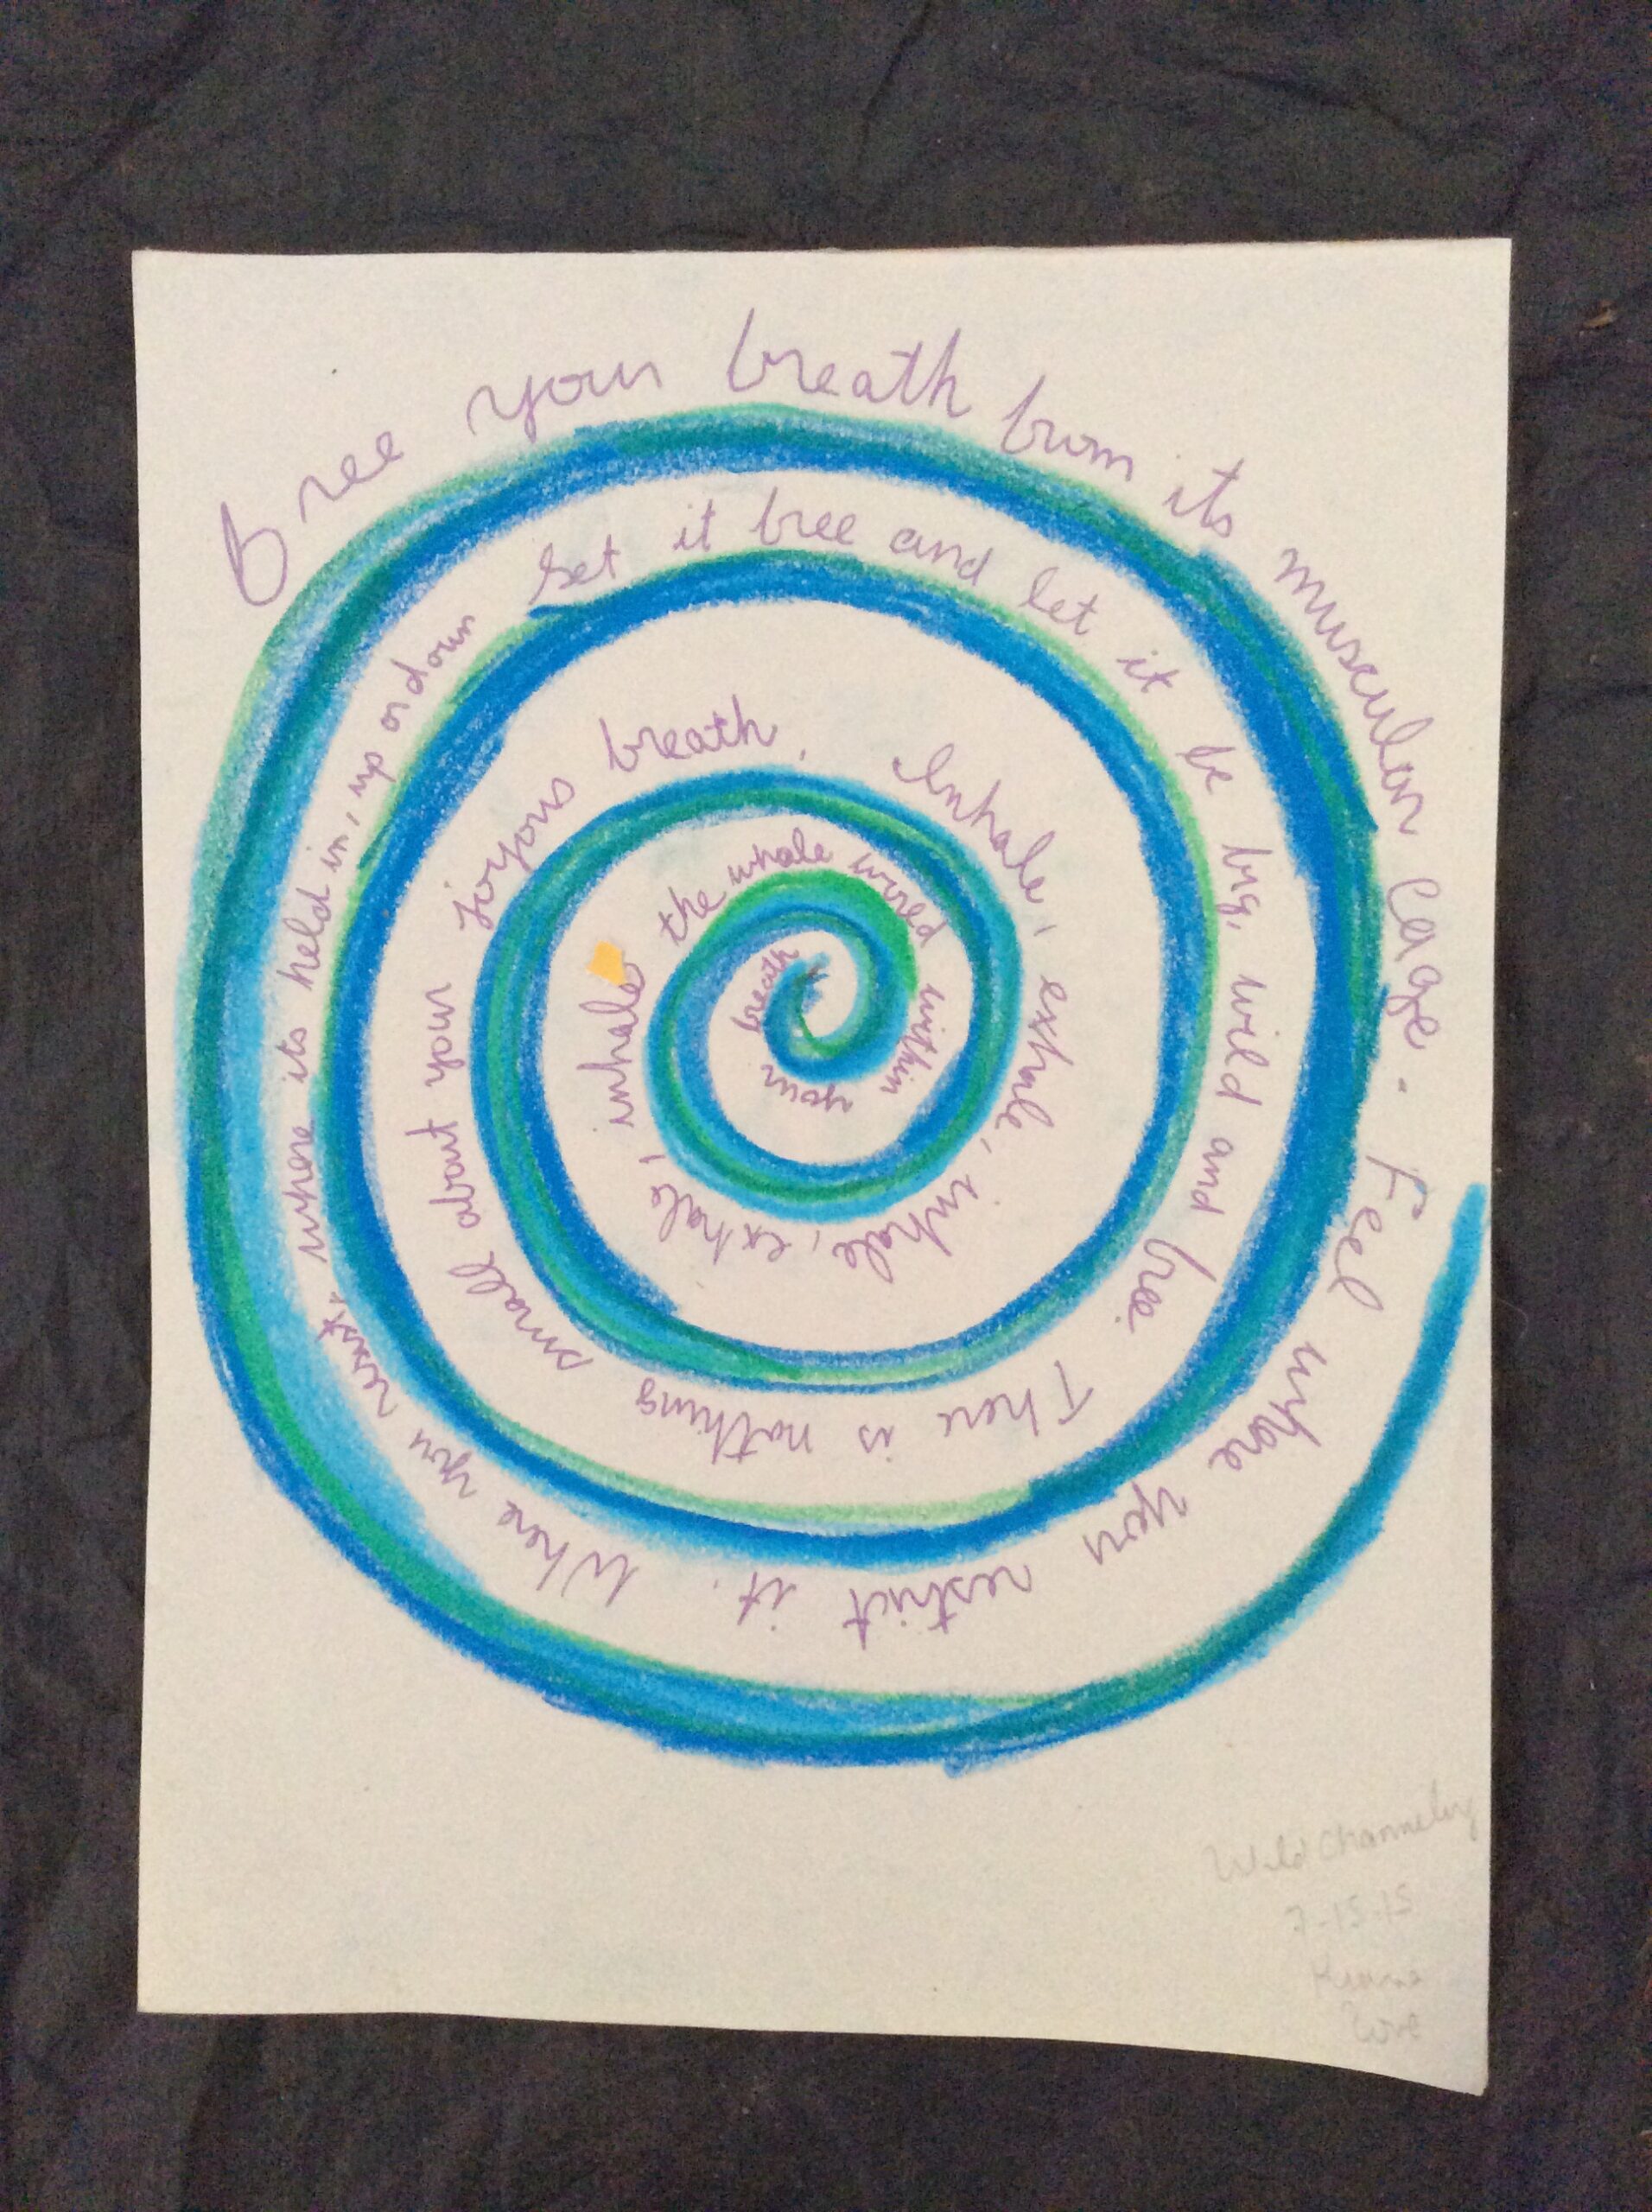 Free your breath from its muscular cage. Feel where you restrict it. Where you resist, where its held in, up or down
Set it free and let it be big, wild and free. There is nothing small about your
joyous breath. Inhale, exhale, inhale, exhale, inhale
the whole world within your breath
Wild Channeling
7-15-15
Love